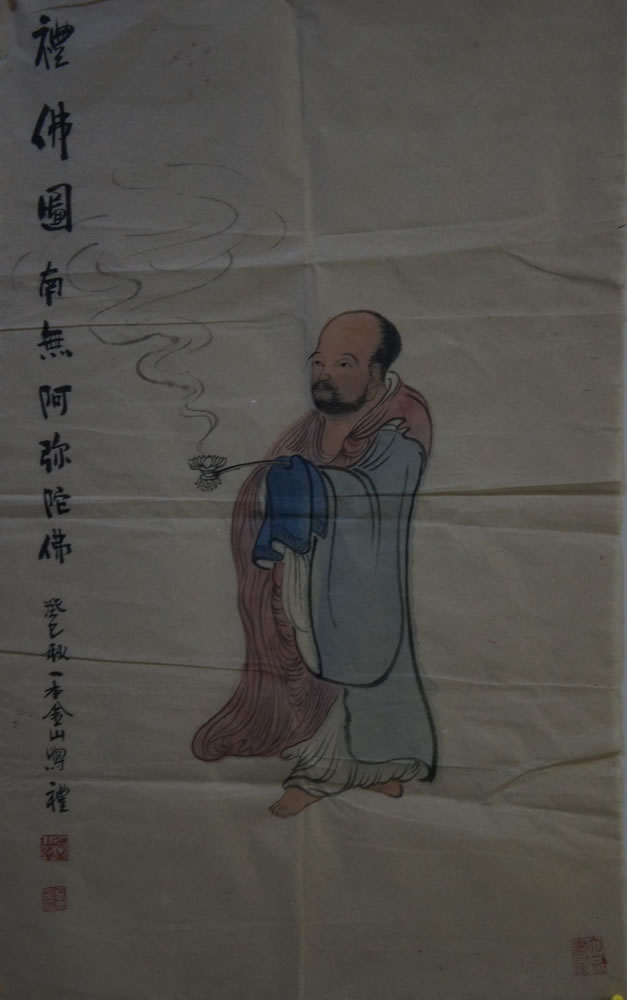 禮佛圖南無阿弥陀佛
癸巳秋一本金山寫禮